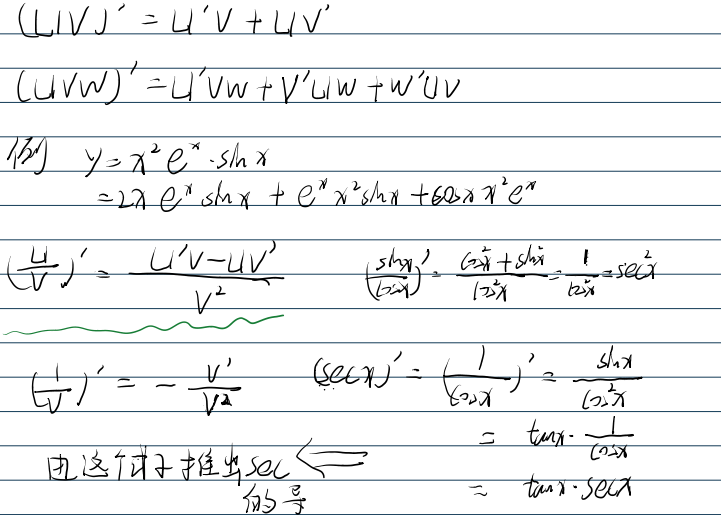 (uv)' = u'v + uv'
(uvw)' = u'vw + v'uw + w'uv
例 y = x² eˣ · sin x
= 2x eˣ sin x + eˣ x² sin x + cos x x² eˣ
(u/v)' = (u'v - uv')/v² (sinx/cosx)' = (cos²x + sin²x)/cos²x = 1/cos²x = sec²x
(1/v)' = - v'/v² (secx)' = (1/cosx)' = sinx/cos²x
= tanx · 1/cosx
用这个式子推出sec
的导 = tanx · secx